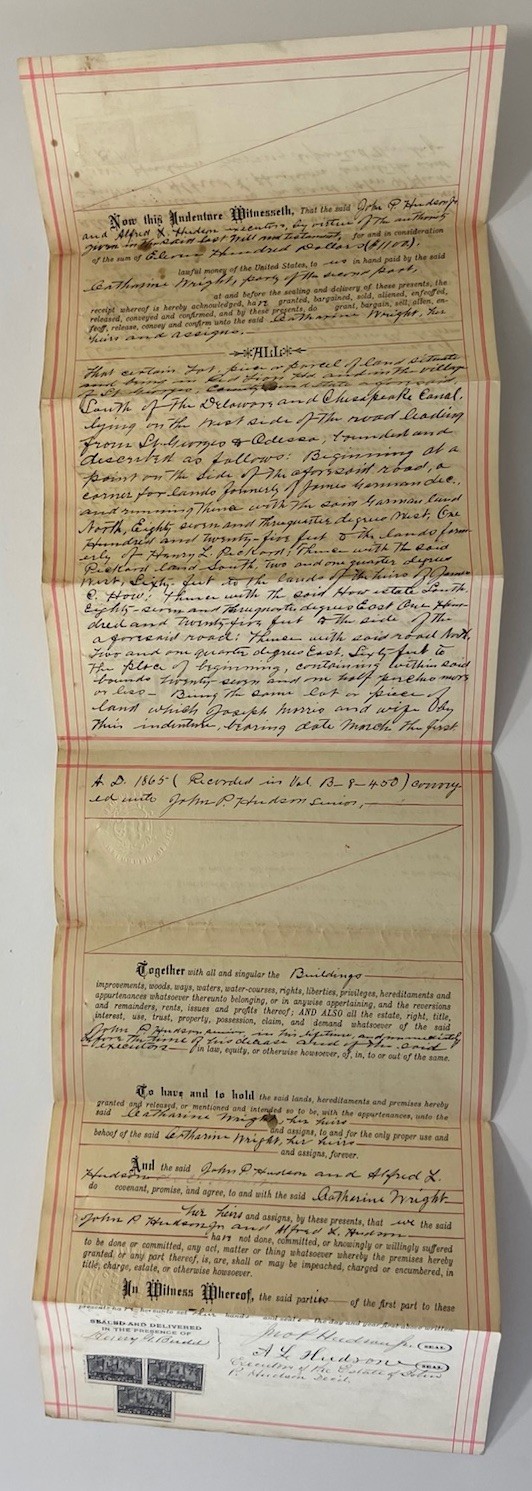 Now this Indenture Witnesseth, That the said John P Hudson Jr
and Alfred L. Hudson executors, by virtue of the authority
given in the said last Will and testament, for and in consideration
of the sum of Eleven Hundred Dollars ($1100.)
lawful money of the United States, to us in hand paid by the said
Catharine Wright, party of the second part,
at and before the sealing and delivery of these presents, the
receipt whereof is hereby acknowledged, have granted, bargained, sold, aliened, enfeoffed,
released, conveyed and confirmed, and by these presents, do grant, bargain, sell, alien, en-
feoff, release, convey and confirm unto the said Catharine Wright, her
heirs and assigns.
ALL
that certain lot, piece or parcel of land situate
and being in Red Lion Hd. and in the village
of St Georges, County and State aforesaid
South of the Delaware and Chesapeake Canal,
lying on the West side of the road leading
from St. Georges to Odessa, bounded and
described as follows: Beginning at a
point on the side of the aforesaid road, a
corner for lands formerly of James Garman dec.,
and running thence with the said Garman land
North, Eighty seven and three quarter degrees West, One
Hundred and twenty-five feet to the lands form-
erly of Henry L. Pickard; thence with the said
Pickard land South, two and one quarter degrees
West, Sixty feet to the lands of the heirs of James
C. How; thence with the said How estate South,
Eighty-seven and three quarter degrees East One Hun-
dred and twenty-five feet to the side of the
aforesaid road; thence with said road North,
two and one quarter degrees East, Sixty feet to
the place of beginning, containing within said
bounds twenty-seven and one half perches more
or less - Being the same lot or piece of
land which Joseph Morris and wife by
their indenture, bearing date March the first
A.D. 1865 (Recorded in Vol. B-8-450) convey-
ed unto John P. Hudson Senior,
Together with all and singular the Buildings
improvements, woods, ways, waters, water-courses, rights, liberties, privileges, hereditaments and
appurtenances whatsoever thereunto belonging, or in anywise appertaining, and the reversions
and remainders, rents, issues and profits thereof; AND ALSO all the estate, right, title,
interest, use, trust, property, possession, claim, and demand whatsoever of the said
John P. Hudson senior in his lifetime, and immediately
before the time of his decease and of the said
executors in law, equity, or otherwise howsoever, of, in, to or out of the same.
To have and to hold the said lands, hereditaments and premises hereby
granted and released, or mentioned and intended so to be, with the appurtenances, unto the
said Catharine Wright, her heirs
and assigns, to and for the only proper use and
behoof of the said Catharine Wright, her heirs
and assigns, forever.
And the said John P Hudson and Alfred L.
Hudson
do covenant, promise, and agree, to and with the said Catherine Wright
her heirs and assigns, by these presents, that we the said
John P Hudson Jr and Alfred L. Hudson
have not done, committed, or knowingly or willingly suffered
to be done or committed, any act, matter or thing whatsoever whereby the premises hereby
granted or any part thereof, is, are, shall or may be impeached, charged or encumbered, in
title, charge, estate, or otherwise howsoever.
In Witness Whereof, the said parties of the first part to these
presents have hereunto set their hands and seals the day and year first above written
SEALED AND DELIVERED
IN THE PRESENCE OF
Jno P Hudson Jr. SEAL
A L Hudson SEAL
Executors of the Estate of John
P. Hudson Decd.